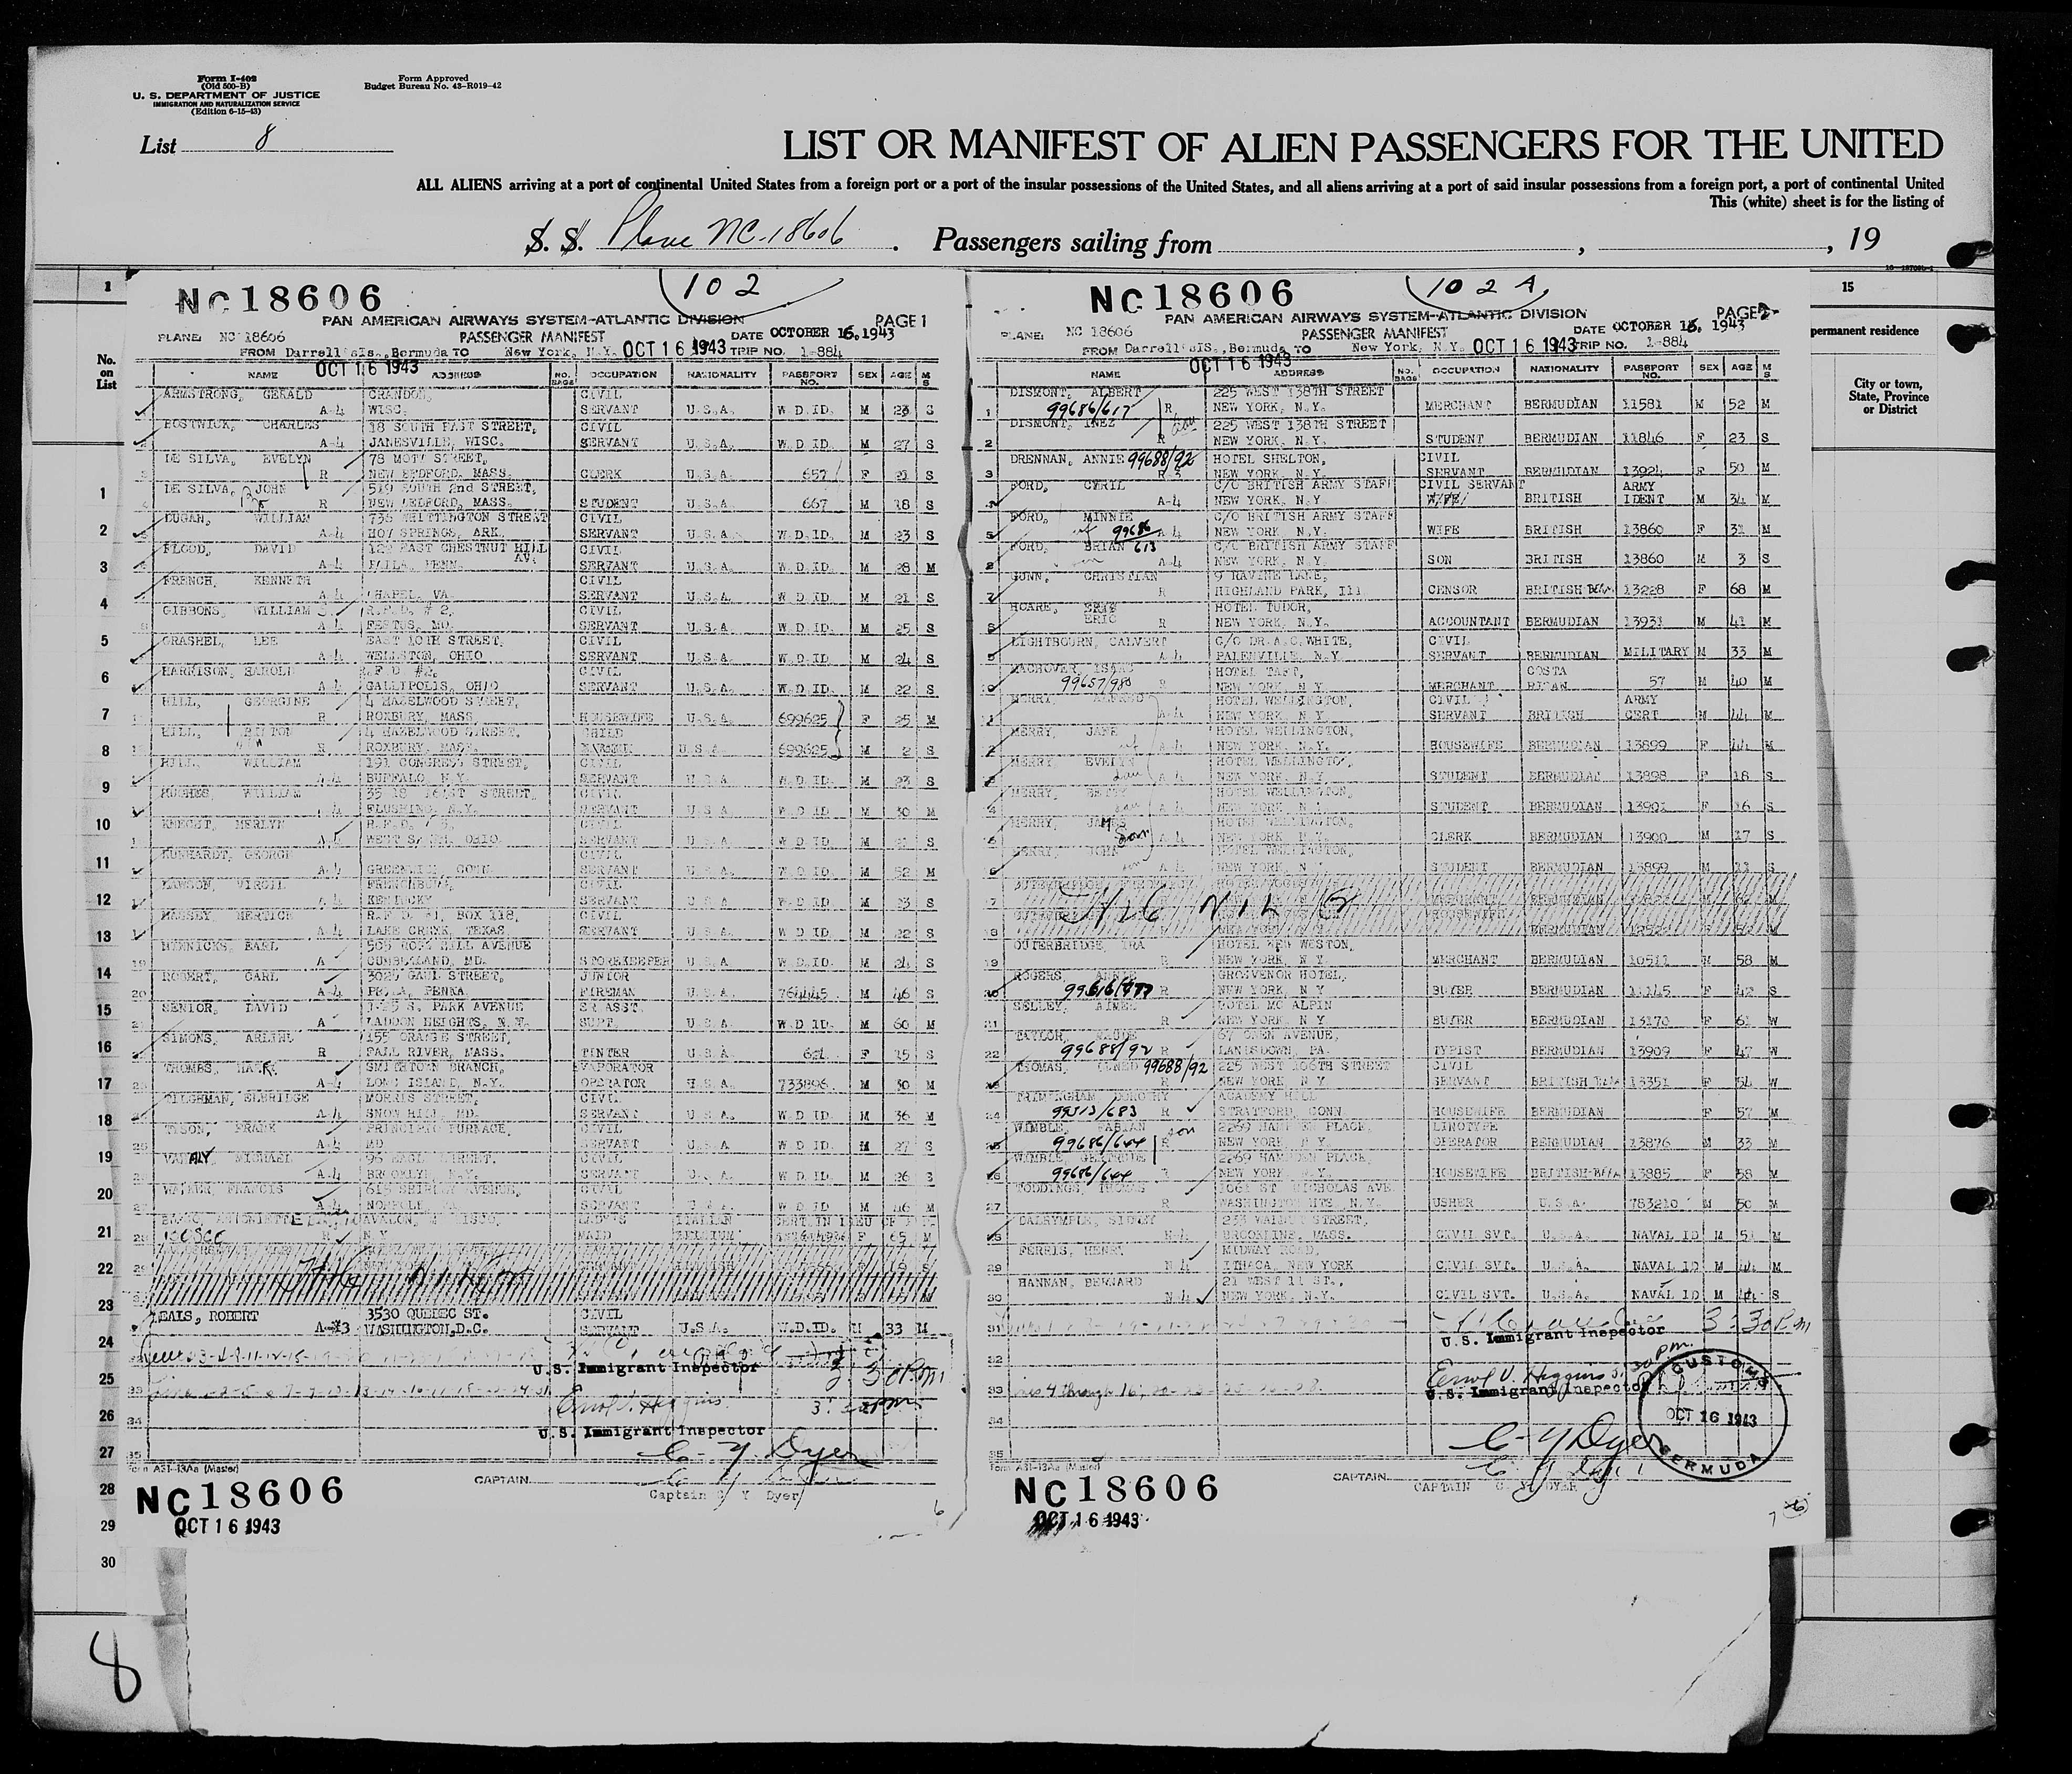 Form I-402
(Old 500-B)
U. S. DEPARTMENT OF JUSTICE
IMMIGRATION AND NATURALIZATION SERVICE
(Edition 6-15-43)
Form Approved
Budget Bureau No. 43-R019-42
List 8
LIST OR MANIFEST OF ALIEN PASSENGERS FOR THE UNITED
ALL ALIENS arriving at a port of continental United States from a foreign port or a port of the insular possessions of the United States, and all aliens arriving at a port of said insular possessions from a foreign port, a port of continental United
This (white) sheet is for the listing of
S. S. Plane NC-18606. Passengers sailing from , , 19
1
No. on List
NC18606
102
PAN AMERICAN AIRWAYS SYSTEM-ATLANTIC DIVISION PAGE 1
PLANE: NC 18606 PASSENGER MANIFEST DATE OCTOBER 16, 1943
FROM Darrell'sIs., Bermuda TO New York, N.Y. OCT 16 1943 TRIP NO. 1-884
OCT 16 1943
NAME ADDRESS NO. BAGS OCCUPATION NATIONALITY PASSPORT NO. SEX AGE M S
ARMSTRONG, GERALD CRANDON, CIVIL
A-4 WISC. SERVANT U.S.A. W.D.ID. M 23 S
BOSTWICK, CHARLES 18 SOUTH EAST STREET, CIVIL
A-4 JANESVILLE, WISC. SERVANT U.S.A. W.D.ID. M 27 S
DE SILVA, EVELYN 78 MOTT STREET,
R NEW BEDFORD, MASS. CLERK U.S.A. 657 F 21 S
DE SILVA, JOHN 519 SOUTH 2nd STREET,
R NEW BEDFORD, MASS. STUDENT U.S.A. 667 M 18 S
DUGAN, WILLIAM 738 WHITTINGTON STREET CIVIL
A-4 HOT SPRINGS, ARK. SERVANT U.S.A. W.D.ID. M 23 S
FLOOD, DAVID EAST CHESTNUT HILL AV. CIVIL
A-4 PHILA. PENN. SERVANT U.S.A. W.D.ID. M 28 M
FRENCH, KENNETH CIVIL
A-4 CHAPEL, VA. SERVANT U.S.A. W.D.ID. M 21 S
GIBBONS, WILLIAM R.F.D. # 2, CIVIL
A-4 FESTUS, MO. SERVANT U.S.A. W.D.ID. M 25 S
GRASHEL, LEE EAST 10TH STREET, CIVIL
A-4 WELLSTON, OHIO SERVANT U.S.A. W.D.ID. M 24 S
HARRISON, HAROLD R.F.D. #2, CIVIL
A-4 GALLIPOLIS, OHIO SERVANT U.S.A. W.D.ID. M 22 S
HILL, GEORGINE 4 HAZELWOOD STREET,
R ROXBURY, MASS. HOUSEWIFE U.S.A. 699625 F 25 M
HILL, 4 HAZELWOOD STREET, CHILD
R ROXBURY, MASS. U.S.A. 699625 M 2 S
HILL, WILLIAM 191 CONGRESS STREET, CIVIL
A-4 BUFFALO, N.Y. SERVANT U.S.A. W.D.ID. M 23 S
HUGHES, WILLIAM STREET, CIVIL
A-4 FLUSHING, N.Y. SERVANT U.S.A. W.D.ID. M 30 M
KNECHT, MERLYN R.F.D. CIVIL
A-4 OHIO SERVANT U.S.A. W.D.ID. M S
KUNHARDT, GEORGE CIVIL
A-4 GREENWICH, CONN. SERVANT U.S.A. W.D.ID. M 52 M
LAWSON, VIRGIL FRENCHBURG, CIVIL
A-4 KENTUCKY SERVANT U.S.A. W.D.ID. M 23 S
MASSEY, R.F.D. #1, BOX 118, CIVIL
A-4 LAKE CREEK, TEXAS SERVANT U.S.A. W.D.ID. M 22 S
MINNICKS, EARL 505 ROSE HILL AVENUE
A CUMBERLAND, MD. STOREKEEPER U.S.A. W.D.ID. M 24 S
ROBERT, CARL 3025 GAUL STREET, JUNIOR
20 A-4 PHILA, PENNA. FIREMAN U.S.A. 764445 M 46 S
SENIOR, DAVID S. PARK AVENUE SR ASST.
A HADDON HEIGHTS, N.J. SUPT. U.S.A. W.D.ID. M 60 M
SIMONS, ARLINE 155 ORANGE STREET,
R FALL RIVER, MASS. TINTER U.S.A. F S
THOMBS, SMITHTOWN BRANCH, EVAPORATOR
A-4 LONG ISLAND, N.Y. OPERATOR U.S.A. 733896 M 30 M
TILGHMAN, ELBRIDGE MORRIS STREET, CIVIL
A-4 SNOW HILL, MD. SERVANT U.S.A. W.D.ID. M 36 M
TYSON, FRANK FURNACE, CIVIL
A-4 MD SERVANT U.S.A. W.D.ID. M 27 S
MICHAEL STREET, CIVIL
A-4 BROOKLYN, N.Y. SERVANT U.S.A. W.D.ID. M 26 S
WALKER, FRANCIS AVENUE, CIVIL
A-4 NORFOLK, SERVANT W.D.ID M 46 M
ANTOINETTE AVALON, LADY'S ITALIAN CERT.IN LIEU OF
R N.Y. MAID BELGIUM F 65 M
BEALS, ROBERT 3530 QUEBEC ST. CIVIL
A-3 WASHINGTON, D.C. SERVANT U.S.A. W.D.ID. M 33 M
U.S. Immigrant Inspector 3:30 P.m
Errol V. Higgins 3:30 PM
U.S. Immigrant Inspector
C- Y Dyer
Form A31-13Aa (Master)
CAPTAIN
Captain C Y Dyer
NC18606
OCT 16 1943
6
NC18606
102A
PAN AMERICAN AIRWAYS SYSTEM-ATLANTIC DIVISION PAGE 2
PLANE: NC 18606 PASSENGER MANIFEST DATE OCTOBER 16, 1943
FROM Darrell'sIs., Bermuda TO New York, N.Y. OCT 16 1943 TRIP NO. 1-884
OCT 16 1943
NAME ADDRESS NO. BAGS OCCUPATION NATIONALITY PASSPORT NO. SEX AGE M S
DISMONT, ALBERT 225 WEST 138TH STREET
1 99686/617 R NEW YORK, N.Y. MERCHANT BERMUDIAN 11581 M 52 M
DISMONT, INEZ 225 WEST 138TH STREET
2 R NEW YORK, N.Y. STUDENT BERMUDIAN 11846 F 23 S
DRENNAN, ANNIE 99688/92 HOTEL SHELTON, CIVIL
3 R NEW YORK, N.Y. SERVANT BERMUDIAN 13924 F 50 M
FORD, CYRIL C/O BRITISH ARMY STAFF CIVIL SERVANT ARMY
A-4 NEW YORK, N.Y. BRITISH IDENT M 34 M
FORD, MINNIE C/O BRITISH ARMY STAFF
5 wf 99686/613 A-4 NEW YORK, N.Y. WIFE BRITISH 13860 F 31 M
FORD, BRIAN C/O BRITISH ARMY STAFF
son A-4 NEW YORK, N.Y. SON BRITISH 13860 M 3 S
GUNN, CHRISTIAN 9 RAVINE LANE,
7 R HIGHLAND PARK, Ill CENSOR BRITISH 13228 F 68 M
HOARE, ERIC HOTEL TUDOR,
R NEW YORK, N.Y. ACCOUNTANT BERMUDIAN 13931 M 41 M
LIGHTBOURN, CALVERT C/O DR.A.C.WHITE, CIVIL
A-4 PALENVILLE, N.Y. SERVANT BERMUDIAN MILITARY M 33 M
MACHOVER, ISAAC HOTEL TAFT, COSTA
99657/980 R NEW YORK, N.Y. MERCHANT RICAN 57 M 40 M
MERRY, ALFRED HOTEL WELLINGTON, CIVIL ARMY
A-4 NEW YORK, N.Y. SERVANT BRITISH CERT M 44 M
MERRY, JANE HOTEL WELLINGTON,
wf A-4 NEW YORK, N.Y. HOUSEWIFE BERMUDIAN 13899 F 44 M
MERRY, EVELYN HOTEL WELLINGTON,
dau A-4 NEW YORK, N.Y. STUDENT BERMUDIAN 13898 F 18 S
MERRY, BETTY HOTEL WELLINGTON,
dau A-4 NEW YORK, N.Y. STUDENT BERMUDIAN 13901 F 16 S
MERRY, JAMES HOTEL WELLINGTON,
Son A-4 NEW YORK, N.Y. CLERK BERMUDIAN 13900 M 17 S
MERRY, JOHN HOTEL WELLINGTON,
son A-4 NEW YORK, N.Y. STUDENT BERMUDIAN 13899 M 13 S
OUTERBRIDGE, IRA HOTEL NEW WESTON,
19 R NEW YORK, N.Y. MERCHANT BERMUDIAN 10511 M 58 M
ROGERS, ANNIE GROSVENOR HOTEL,
R NEW YORK, N.Y. BUYER BERMUDIAN 11145 F 42 S
SELLEY, AIMEE HOTEL MC ALPIN
21 R NEW YORK, N.Y. BUYER BERMUDIAN 13170 F 61 W
TAYLOR, MAUDE 67 GREEN AVENUE,
22 99688/92 R LANSDOWN, PA. TYPIST BERMUDIAN 13909 F 47 W
THOMAS, 99688/92 225 WEST 106TH STREET CIVIL
R NEW YORK, N.Y. SERVANT BRITISH 13351 F 54 W
TRIMINGHAM, DOROTHY ACADEMY HILL
24 99513/683 R STRATFORD, CONN. HOUSEWIFE BERMUDIAN F 57 M
WIMBLE, FABIAN son 2269 HAMPDEN PLACE, LINOTYPE
99686/644 R NEW YORK, N.Y. OPERATOR BERMUDIAN 13876 M 33 M
WIMBLE, GERTRUDE 2269 HAMPDEN PLACE,
26 99686/644 R NEW YORK, N.Y. HOUSEWIFE BRITISH 13885 F 58 M
TODDINGS, THOMAS ST NICHOLAS AVE
27 R WASHINGTON HTS, N.Y. USHER U.S.A. 783210 M 50 M
DALRYMPLE, SIDNEY 233 WALNUT STREET,
N-4 BROOKLINE, MASS. CIVIL SVT. U.S.A. NAVAL ID M 51 M
FERRIS, HENRY MIDWAY ROAD,
29 N-4 ITHACA, NEW YORK CIVIL SVT. U.S.A. NAVAL ID M 44 M
HANNAN, BERNARD 21 WEST 11 ST.,
30 N-4 NEW YORK, N.Y. CIVIL SVT. U.S.A. NAVAL ID M 44 S
31 3:30 P.m
U.S. Immigrant Inspector
32
Errol V. Higgins 3:30 pm.
33 U.S. Immigrant Inspector
34
35
C-Y Dyer
CUSTOMS
OCT 16 1943
BERMUDA
Form A31-13Aa (Master)
CAPTAIN
CAPTAIN C. Y. DYER
NC18606
OCT 16 1943
7
15
permanent residence
City or town, State, Province or District
1
2
3
4
5
6
7
8
9
10
11
12
13
14
15
16
17
18
19
20
21
22
23
24
25
26
27
28
29
30
8